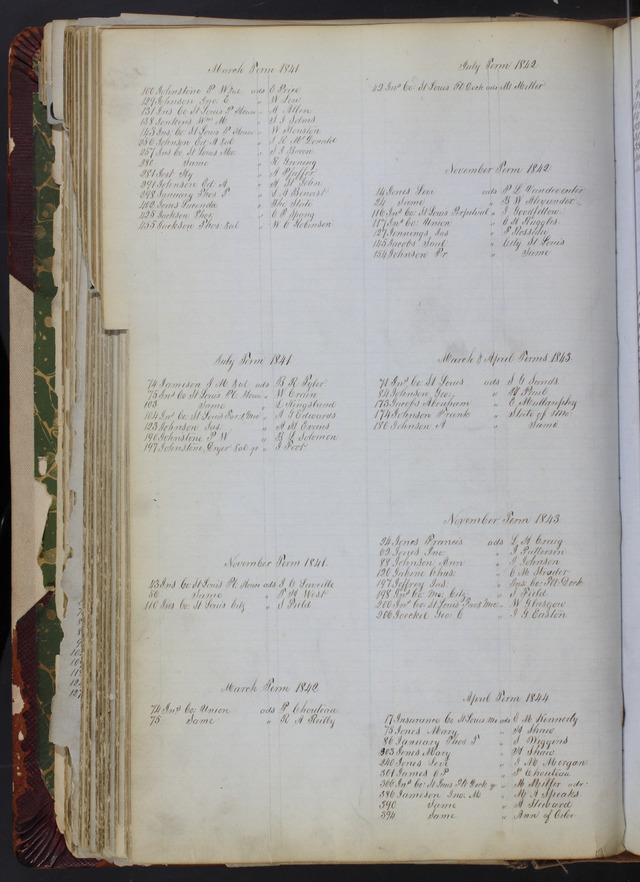 March Term 1841
100 Johnstone P. W. Jur ads C Price
129 Johnson Jno. C " W Low
131 Ins Co St Louis P " A Allen
138 Jenkins Wm M " B J Johns
145 Ins Co St Louis P " W Houston
236 Johnson Ed. A " J R McDonald
257 Ins Co St Louis Mo " J J Bacon
280 Same " R Grening
281 Jost Hy " A Pfeffer
291 Johnson Ed. A " A St John
298 January Thos T " J A Barnst
402 Jones Lucinda " The State
425 Jackson Thos " C P Spang
435 Jackson Thos " W C Robinson
July Term 1841
74 Jameson J M ads B R Tyler
75 Ins Co St Louis Pl " W Crain
103 Same " L Kingsland
104 Ins Co St Louis " A G Edwards
123 Johnson Jas. " A M Evans
190 Johnstone P W " B L Solomon
197 Johnstone, " J Peck
November Term 1841
43 Ins Co St Louis Pl ads J C Laveille
56 Same " P H West
110 Ins Co St Louis City " J Field
March Term 1842
74 Ins Co Union ads P Chouteau
75 Same " R A Reilly
July Term 1842
42 Ins Co St Louis Pl Dock ads M Miller
November Term 1842
14 Jones Levi ads P L Vandeventer
24 Same " B W Alexander
116 Ins Co St Louis Perpetual " J Goodfellow
117 Ins Co Union " C H Ruggles
127 Jennings, Jas " P Rossine
145 Jacobs Saml " City St Louis
154 Johnson Pr " Same
March & April Terms 1843
71 Ins Co St Louis ads J G Sands
84 Johnson Geo " H Paul
173 Jacobs Abraham " E Mullanphy
174 Johnson Frank " State of Mo.
180 Johnson A " Same
November Term 1843
24 Jones Francis ads L H Craig
62 Jones Jno " J Patterson
88 Johnson Ann " J Johnson
120 Jabine Chas. " C M Strader
197 Jeffrey Jas. " Ins. Co. Pl. Dock
198 Ins Co Mo. City " J Field
200 Ins Co St Louis " W Glasgow
206 Joeckel Geo C " J G Easton
April Term 1844
17 Insurance Co St Louis Mo ads C M Kennerly
75 Jones Mary " H Shaw
86 January Thos T " J Wiggins
203 Jones Mary " H Shaw
240 Jones Levi " J M Morgan
301 James C P " P Chouteau
306 Ins Co St Louis Fl. Dock " M Miller adr
380 Jameson Jno. M " M A Speaks
390 Same " A Steward
394 Same " Ann of Color